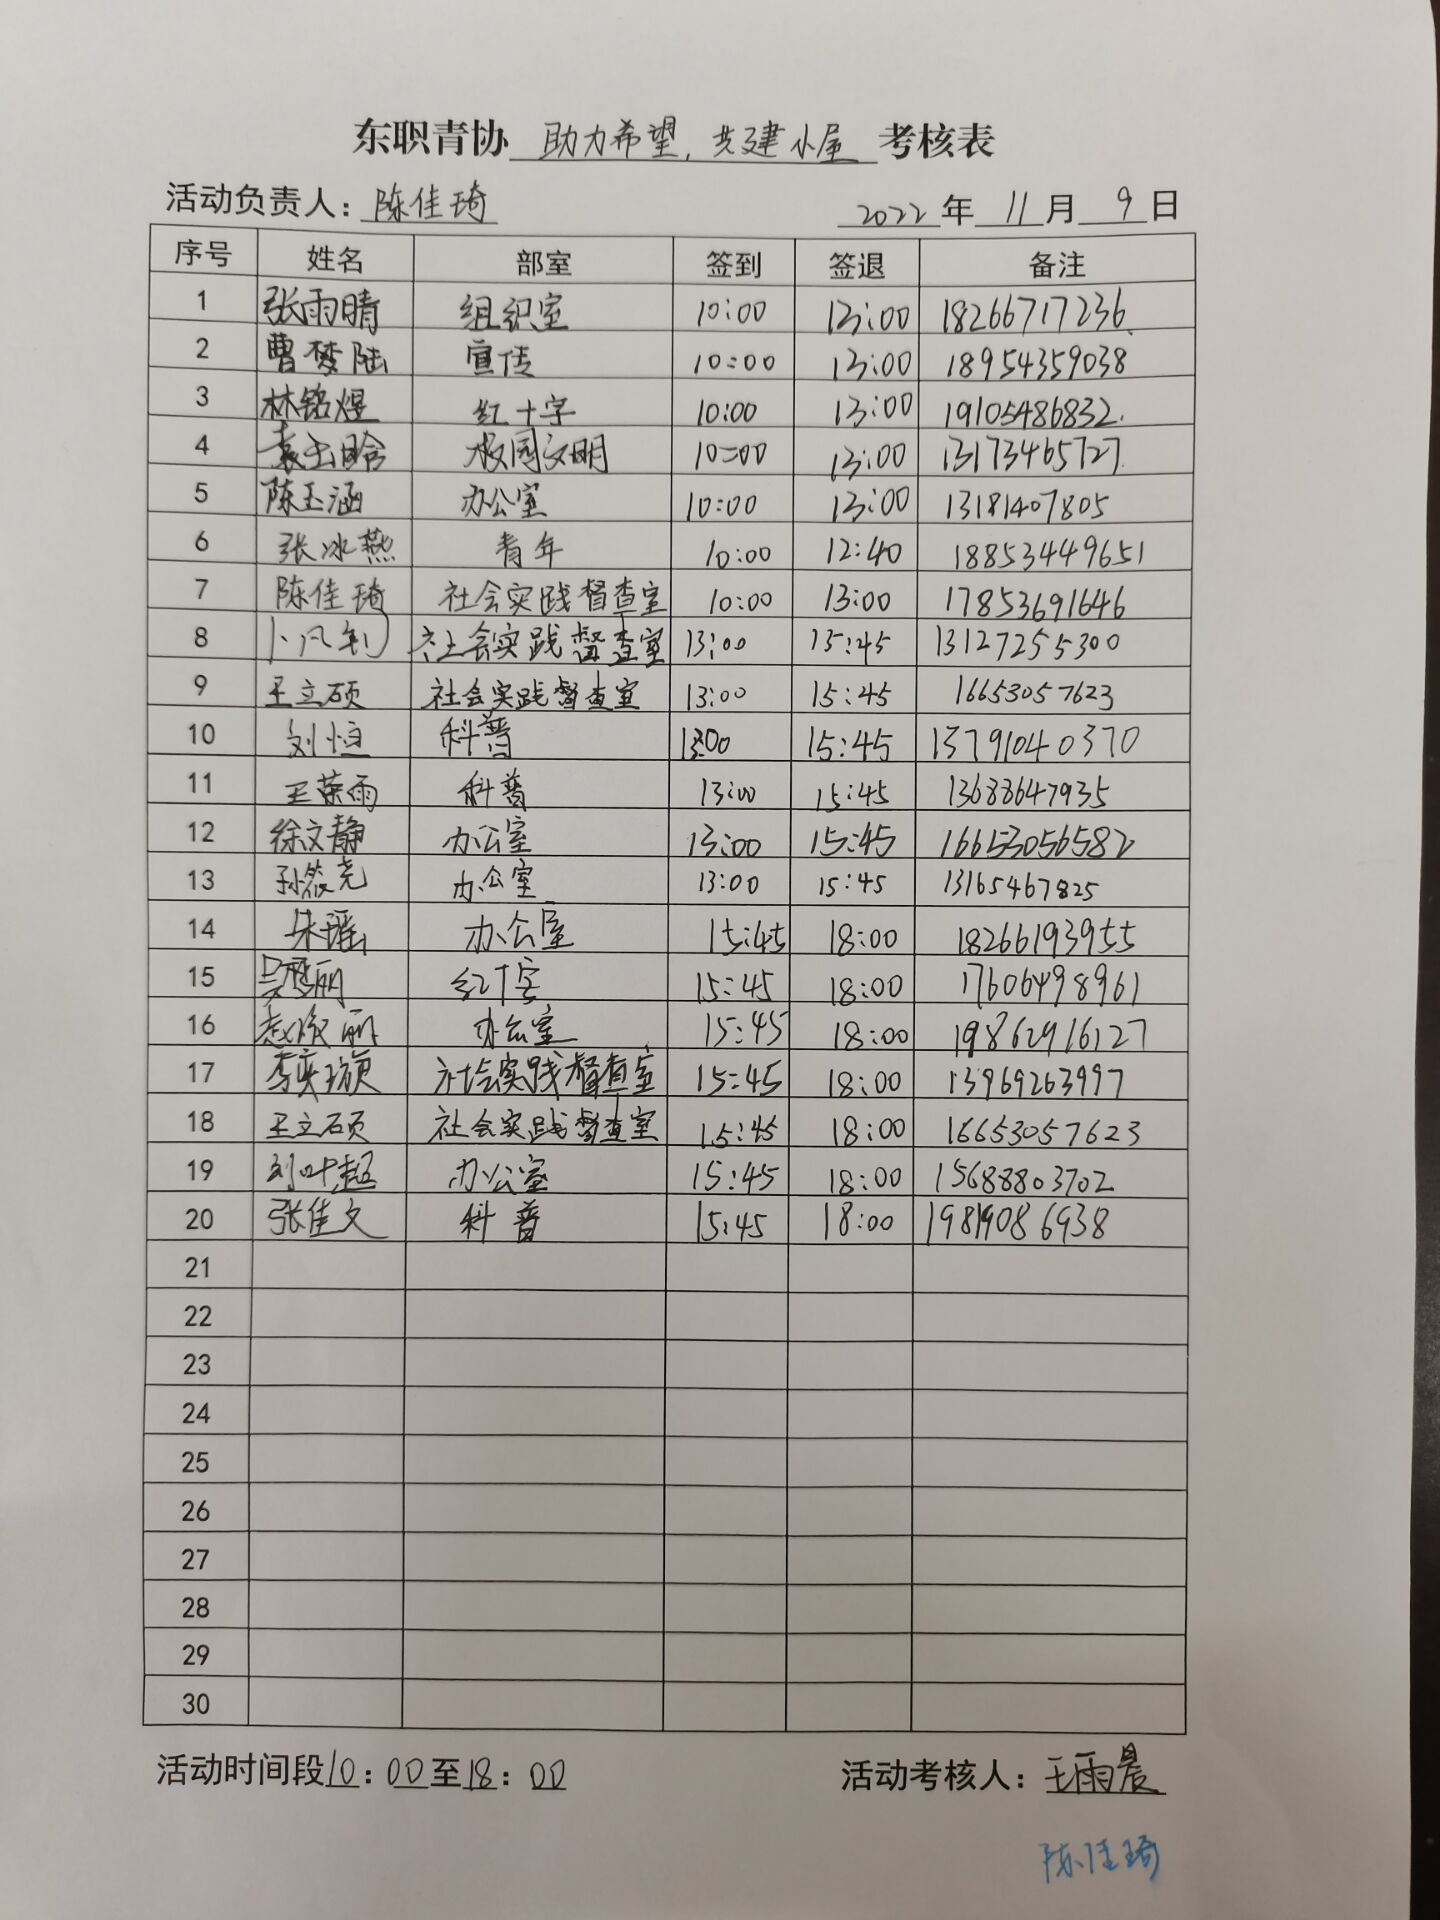 东职青协 助力希望，共建小屋 考核表
活动负责人：陈佳琦 2022 年 11 月 9 日
序号 姓名 部室 签到 签退 备注
1 张雨晴 组织室 10:00 13:00 18266717236
2 曹梦陆 宣传 10:00 13:00 18954359038
3 林铭煜 红十字 10:00 13:00 19105486832
4 袁玉晗 校园文明 10:00 13:00 13173465727
5 陈玉涵 办公室 10:00 13:00 13181407805
6 张冰燕 青年 10:00 12:40 18853449651
7 陈佳琦 社会实践督查室 10:00 13:00 17853691646
8 卜凡钊 社会实践督查室 13:00 15:45 13127255300
9 王立硕 社会实践督查室 13:00 15:45 16653057623
10 刘恒 科普 13:00 15:45 13791040370
11 王荣雨 科普 13:00 15:45 13688647935
12 徐文静 办公室 13:00 15:45 16653056582
13 孙筱尧 办公室 13:00 15:45 13165467825
14 朱瑶 办公室 15:45 18:00 18266193955
15 红十字 15:45 18:00 17606498961
16 办公室 15:45 18:00 19862916127
17 李奕璇 社会实践督查室 15:45 18:00 13969263997
18 王立硕 社会实践督查室 15:45 18:00 16653057623
19 刘叶超 办公室 15:45 18:00 15688803702
20 张佳文 科普 15:45 18:00 19819086938
21
22
23
24
25
26
27
28
29
30
活动时间段10：00至18：00 活动考核人：王雨晨
陈佳琦